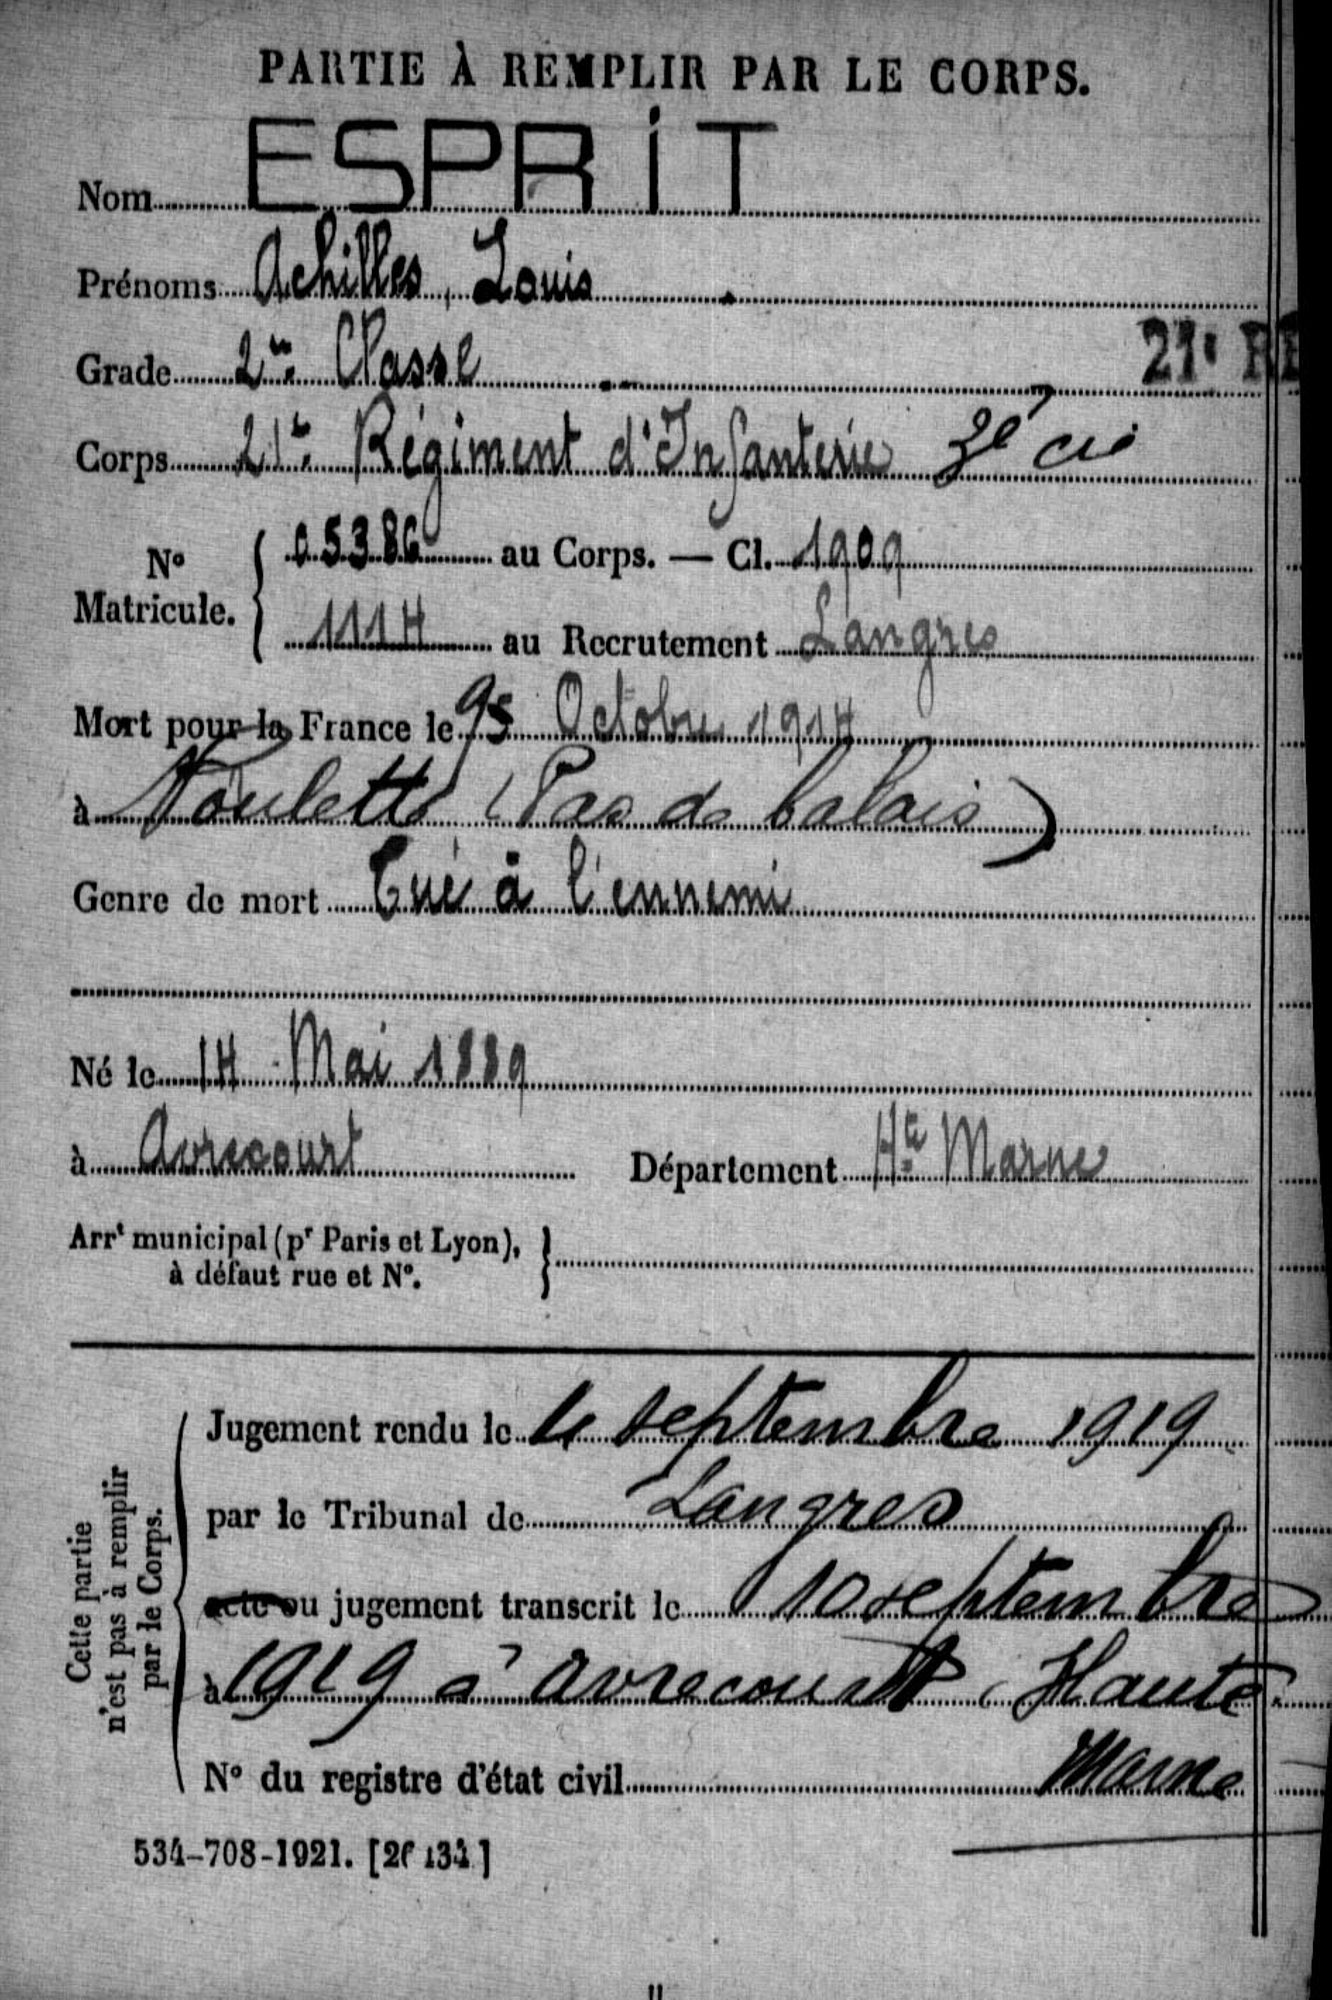 PARTIE À REMPLIR PAR LE CORPS.
Nom ESPRIT
Prénoms Achilles, Louis
Grade 2me Classe
21e RE
Corps 21e Régiment d'Infanterie 3e Cie
No Matricule. { 05386 au Corps. — Cl. 1909
1114 au Recrutement Langres
Mort pour la France le Octobre 1914
à Noulette (Pas de Calais)
Genre de mort Tué à l'ennemi
Né le 14 Mai 1889
à Avrecourt Département Hte Marne
Arrt municipal (pr Paris et Lyon), }
à défaut rue et No.
Cette partie
n'est pas à remplir
par le Corps.
Jugement rendu le 4 septembre 1919
par le Tribunal de Langres
acte ou jugement transcrit le 10 septembre
à 1919 à Avrecourt Haute
No du registre d'état civil Marne
534-708-1921. [26434]